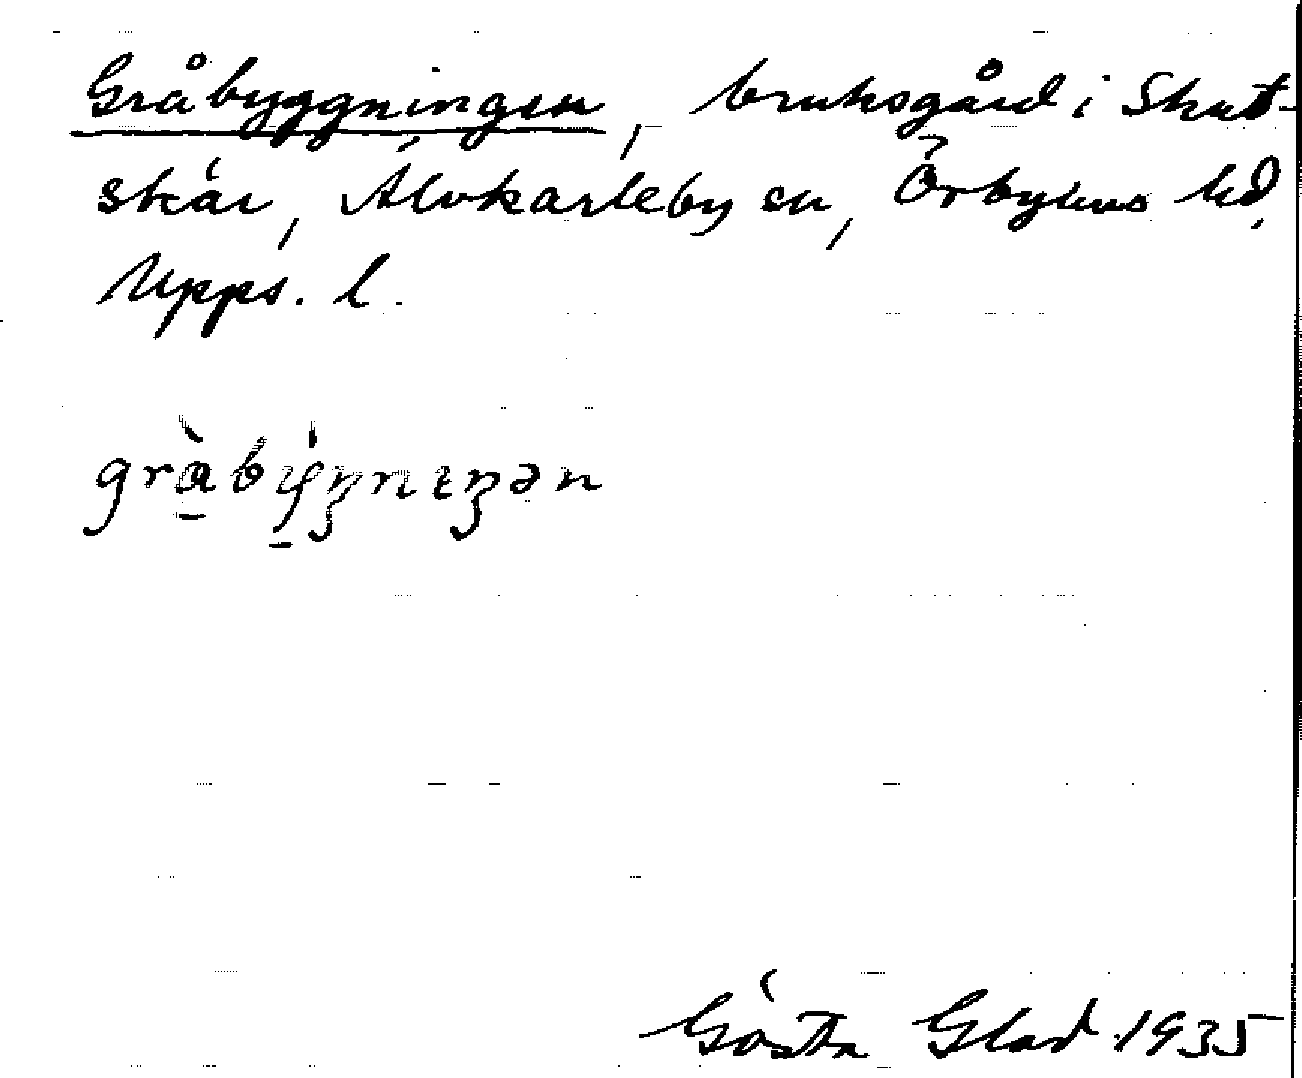 Gråbyggningen, bruksgård i Skut-
skär, Älvkarleby sn, Örbyhus hd,
Upps. l.
Gösta Glad 1935